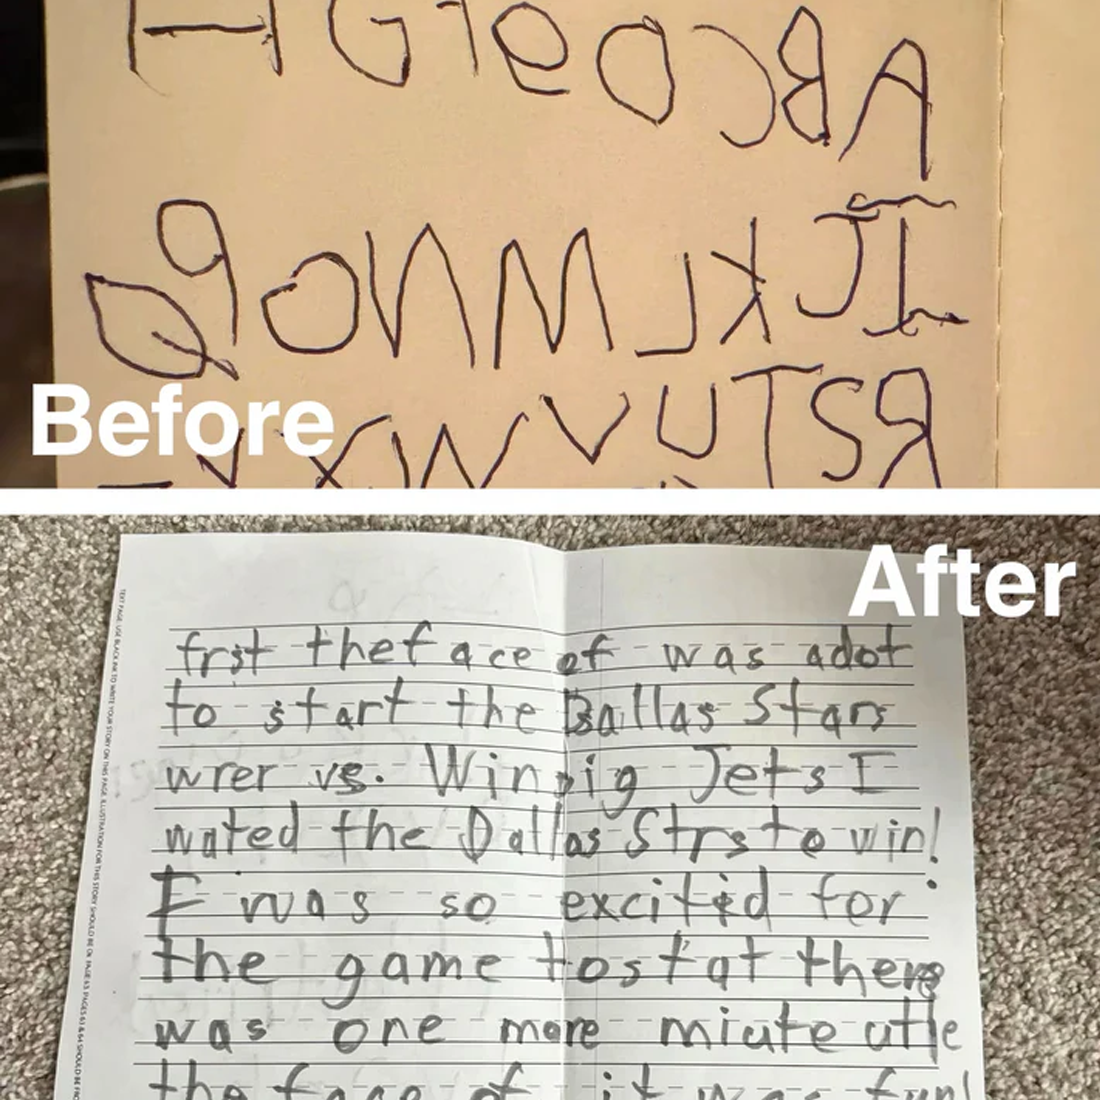 A B C D e F G H
I J K L M N O P Q
R S T U V W X Y
Before
After
frst thef ace of was adot
to start the Dallas Stars
wrer vs. Winpig Jets I
wated the Dallas Strs to win!
I was so excitid for
the game tostat there
was one more miute utle
the face of it was fun!
TEXT PAGE. USE BLACK INK TO WRITE YOUR STORY ON THIS PAGE. ILLUSTRATION FOR THIS STORY SHOULD BE ON PAGE 63. PAGES 61 & 64 SHOULD BE